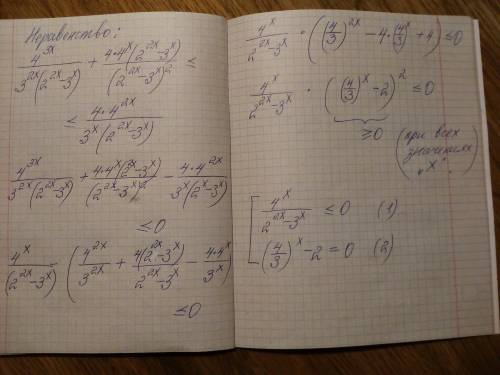 Неравенство:
4^{3x}/(3^{2x}(2^{2x}-3^x)) + 4·4^x(2^{2x}-3^x)/(2^{2x}-3^x)^2 ≤
≤ 4·4^{2x}/(3^x(2^{2x}-3^x))
4^{3x}/(3^{2x}(2^{2x}-3^x)) + 4·4^x(2^{2x}-3^x)/(2^{2x}-3^x)^2 - 4·4^{2x}/(3^x(2^{2x}-3^x))
≤0
4^x/(2^{2x}-3^x) (4^{2x}/3^{2x} + 4(2^{2x}-3^x)/(2^{2x}-3^x) - 4·4^x/3^x)
≤0
4^x/(2^{2x}-3^x) · ((4/3)^{2x} - 4·(4/3)^x + 4) ≤0
4^x/(2^{2x}-3^x) · ((4/3)^x - 2)^2 ≤0
≥0 (при всех
значениях
"x".)
[ 4^x/(2^{2x}-3^x) ≤ 0 (1)
(4/3)^x - 2 = 0 (2)